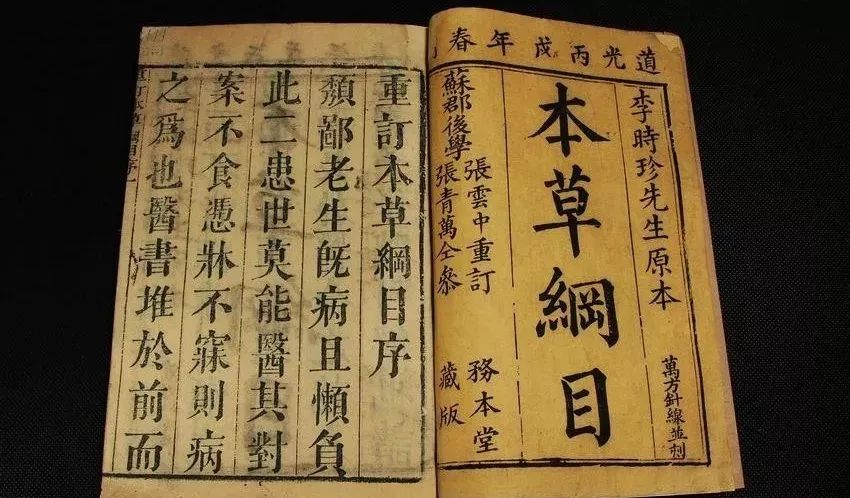 道光丙戌年春
李時珍先生原本
萬方針線並刻
本草綱目
務本堂
藏版
張雲中重訂
蘇郡後學
張青萬仝參
重訂本草綱目序
頽鄙老生旣病且懶負
此二患世莫能醫其對
案不食憑牀不寐則病
之爲也醫書堆於前而